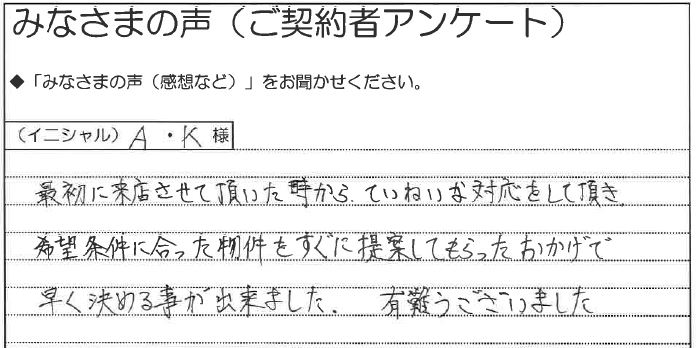 みなさまの声（ご契約者アンケート）
◆「みなさまの声（感想など）」をお聞かせください。
（イニシャル）A・K様
最初に来店させて頂いた時から、ていねいな対応をして頂き、
希望条件に合った物件をすぐに提案してもらったおかげで
早く決める事が出来ました。　有難うございました